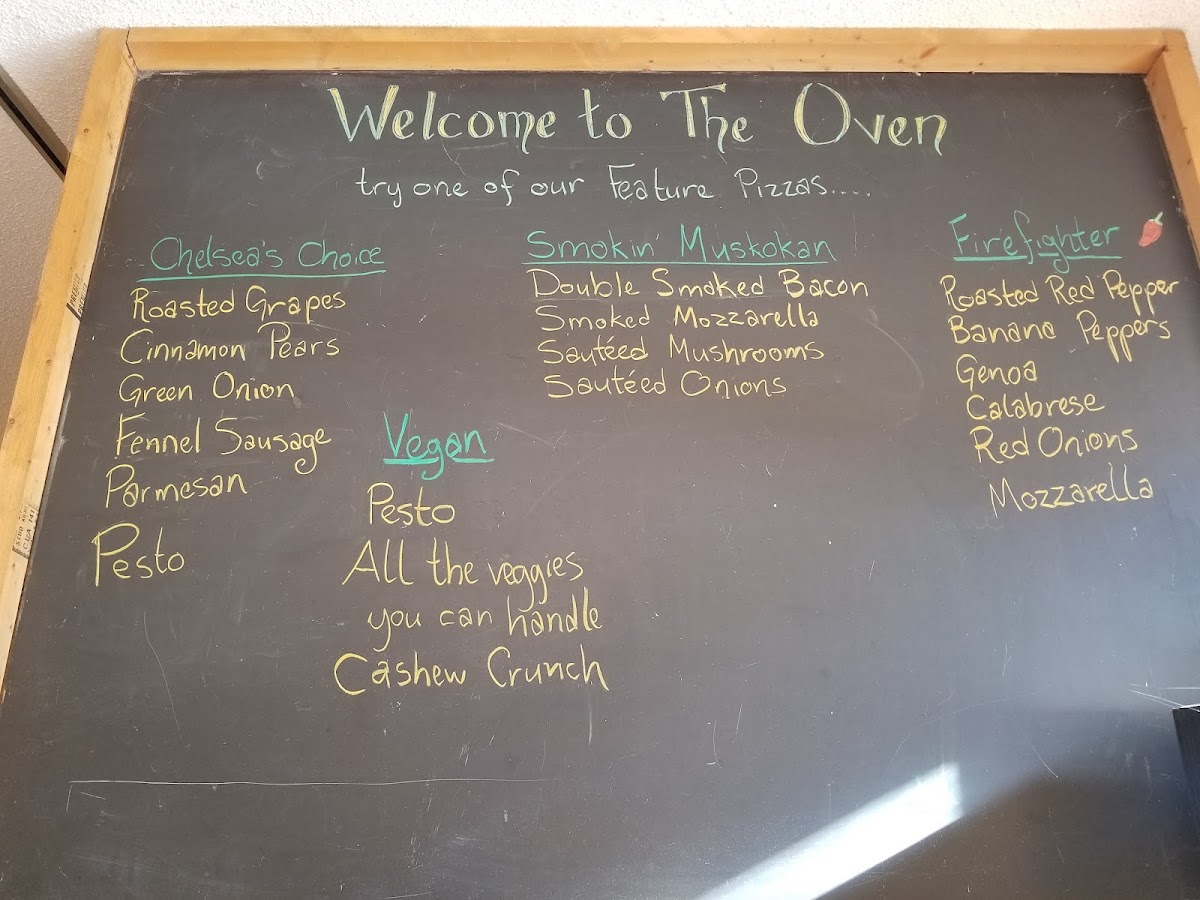 Welcome to The Oven
try one of our Feature Pizzas....
Chelsea's Choice
Roasted Grapes
Cinnamon Pears
Green Onion
Fennel Sausage
Parmesan
Pesto
Vegan
Pesto
All the veggies
you can handle
Cashew Crunch
Smokin' Muskokan
Double Smoked Bacon
Smoked Mozzarella
Sautéed Mushrooms
Sautéed Onions
Firefighter
Roasted Red Pepper
Banana Peppers
Genoa
Calabrese
Red Onions
Mozzarella